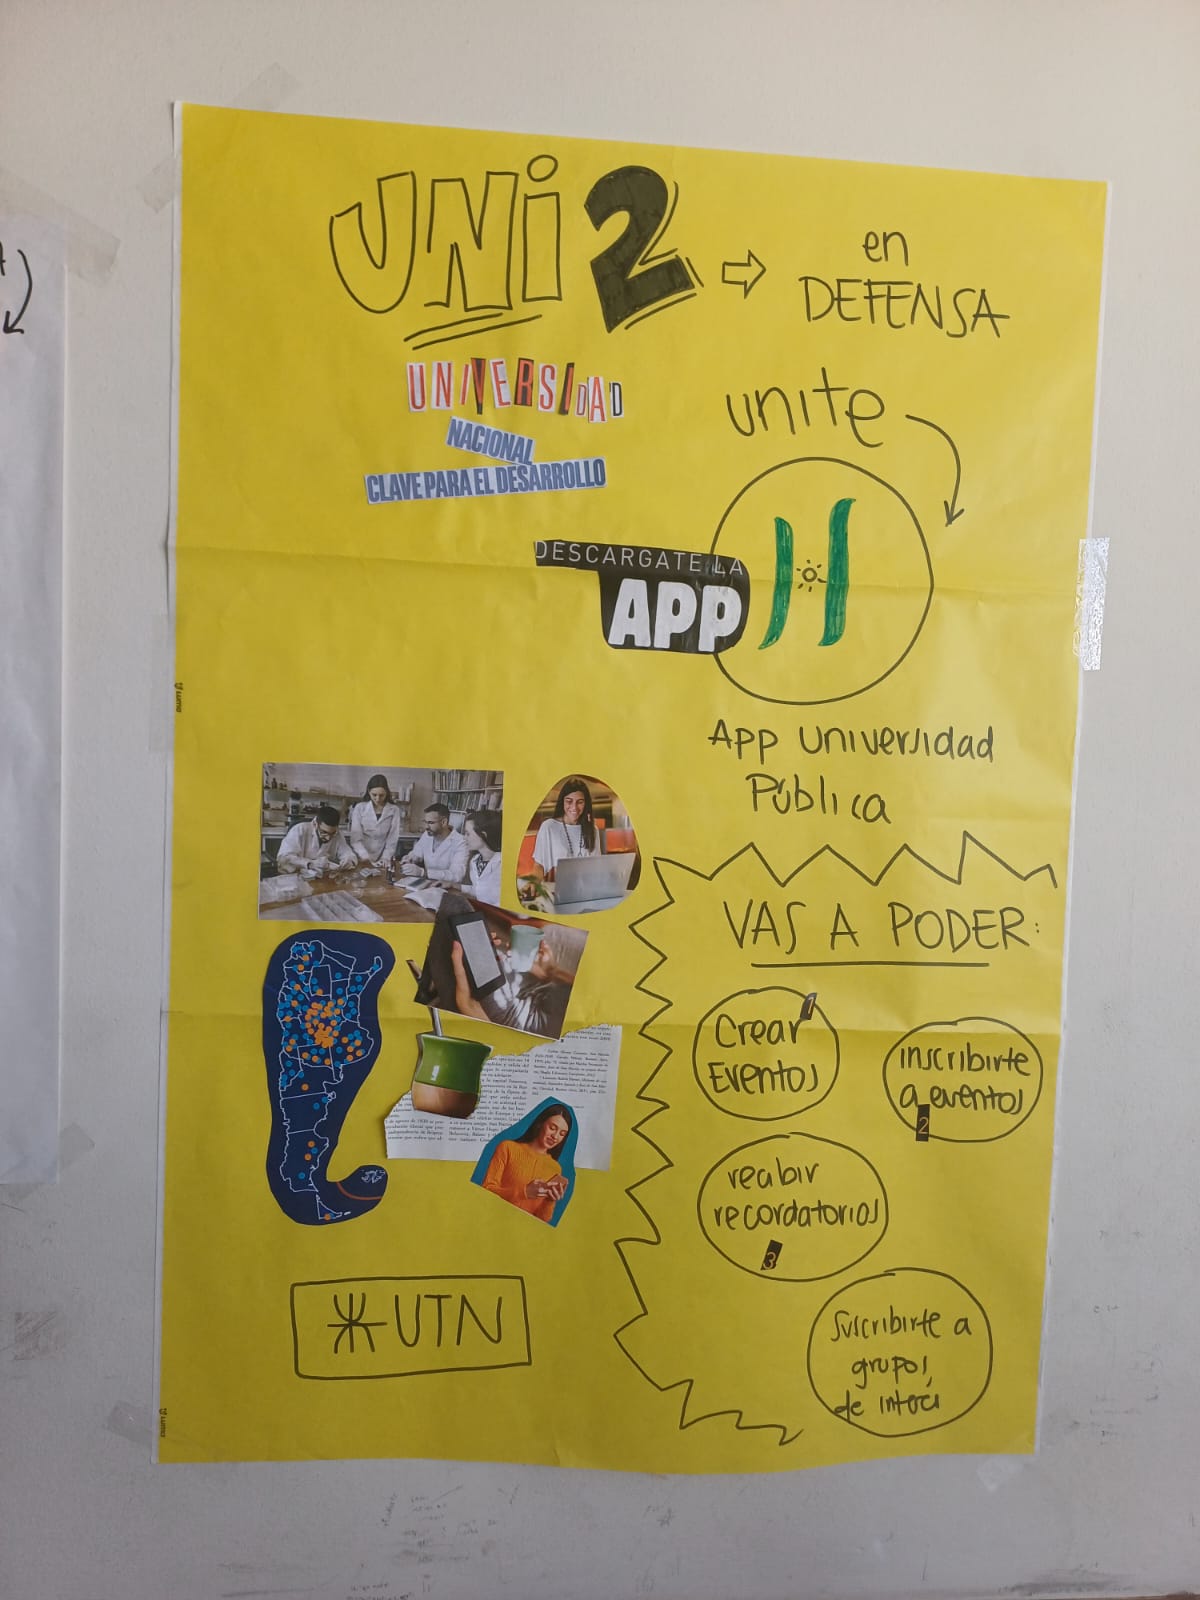 UNi 2
en
DEFENSA
UNIVERSIDAD
NACIONAL
CLAVE PARA EL DESARROLLO
unite
DESCARGATE LA
APP
App Universidad
Pública
VAS A PODER:
1
Crear
Eventos
inscribirte
a eventos
2
recibir
recordatorios
3
Suscribirte a
grupos
de interés
UTN